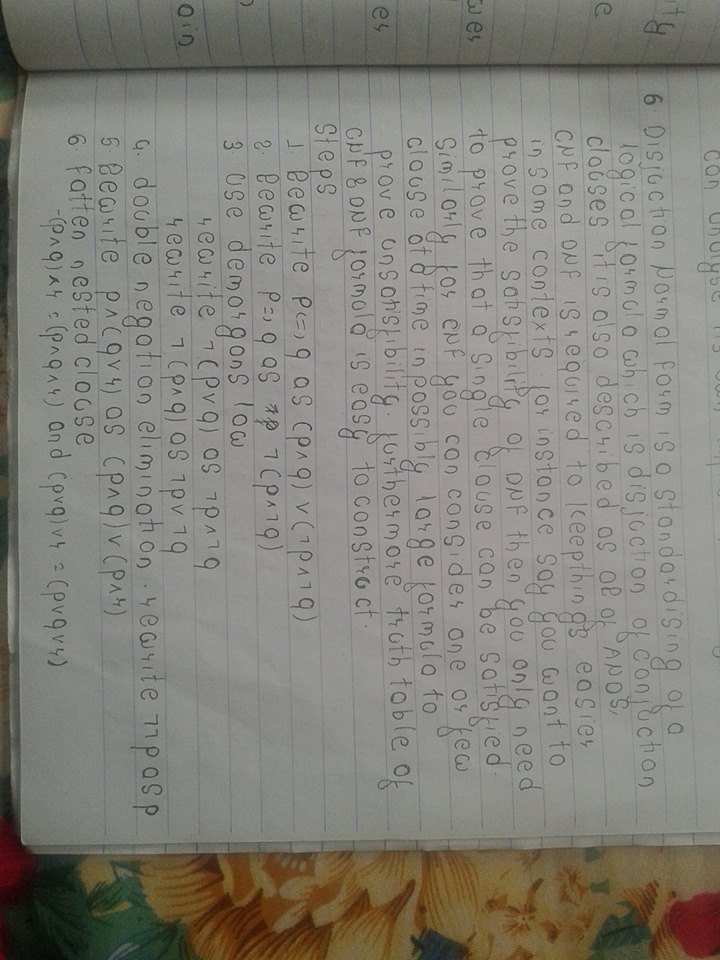 can analyse
6 Disjuction Normal form is a standardising of a
logical formula which is disjuction of conjuction
clauses it is also described as OR of ANDS,
CNF and DNF is required to keep things easier
in some contexts for instance say you want to
prove the satisfibility of DNF then you only need
to prove that a single clause can be satisfied.
Similarly for CNF you can consider one or few
clause at a time in possibly large formula to
prove unsatisfibility, furthermore truth table of
CNF & DNF formula is easy to construct.
Steps
1. Rewrite p<=>q as (p∧q) ∨ (¬p∧¬q)
2. Rewrite p=>q as ¬(p∧¬q)
3 Use demorgans law
rewrite ¬(p∨q) as ¬p∧¬q
rewrite ¬(p∧q) as ¬p∨¬q
4. double negation elimination. rewrite ¬¬p as p
5 Rewrite p∧(q∨r) as (p∧q)∨(p∧r)
6 fatten nested clause
-(p∧q)∧r = (p∧q∧r) and (p∨q)∨r = (p∨q∨r)
ity
e
wer
er
oin